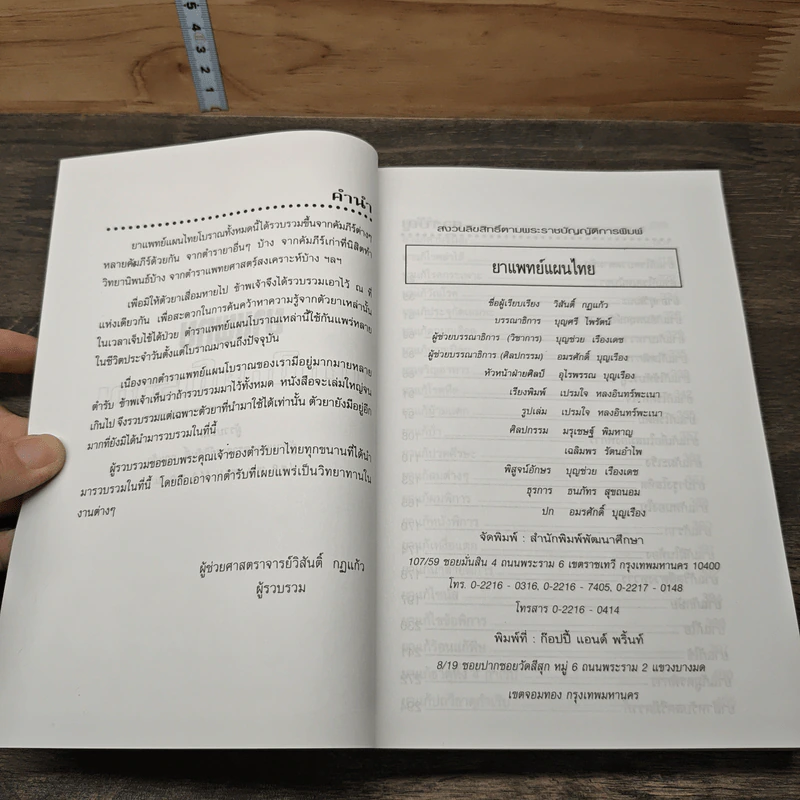 5
4
3
2
1
คำนำ
ยาแพทย์แผนไทยโบราณทั้งหมดนี้ได้รวบรวมขึ้นจากคัมภีร์ต่างๆ
หลายคัมภีร์ด้วยกัน จากตำรายาอื่นๆ บ้าง จากคัมภีร์เก่าที่นิสิตทำ
วิทยานิพนธ์บ้าง จากตำราแพทยศาสตร์สงเคราะห์บ้าง ฯลฯ
เพื่อมิให้ตัวยาเสื่อมหายไป ข้าพเจ้าจึงได้รวบรวมเอาไว้ ณ ที่
แห่งเดียวกัน เพื่อสะดวกในการค้นคว้าหาความรู้จากตัวยาเหล่านั้น
ในเวลาเจ็บไข้ได้ป่วย ตำราแพทย์แผนโบราณเหล่านี้ใช้กันแพร่หลาย
ในชีวิตประจำวันตั้งแต่โบราณมาจนถึงปัจจุบัน
เนื่องจากตำราแพทย์แผนโบราณของเรามีอยู่มากมายหลาย
ตำรับ ข้าพเจ้าเห็นว่าถ้ารวบรวมมาไว้ทั้งหมด หนังสือจะเล่มใหญ่จน
เกินไป จึงรวบรวมแต่เฉพาะตัวยาที่นำมาใช้ได้เท่านั้น ตัวยายังมีอยู่อีก
มากที่ยังมิได้นำมารวบรวมในที่นี้
ผู้รวบรวมขอขอบพระคุณเจ้าของตำรับยาไทยทุกขนานที่ได้นำ
มารวบรวมในที่นี้ โดยถือเอาจากตำรับที่เผยแพร่เป็นวิทยาทานใน
งานต่างๆ
ผู้ช่วยศาสตราจารย์วิสันติ์ กฏแก้ว
ผู้รวบรวม
สงวนลิขสิทธิ์ตามพระราชบัญญัติการพิมพ์
ยาแพทย์แผนไทย
ชื่อผู้เรียบเรียง วิสันติ์ กฏแก้ว
บรรณาธิการ บุญศรี ไพรัตน์
ผู้ช่วยบรรณาธิการ (วิชาการ) บุญช่วย เรืองเดช
ผู้ช่วยบรรณาธิการ (ศิลปกรรม) อมรศักดิ์ บุญเรือง
หัวหน้าฝ่ายศิลป์ อุไรพรรณ บุญเรือง
เรียงพิมพ์ เปรมใจ หลงอินทร์พะเนา
รูปเล่ม เปรมใจ หลงอินทร์พะเนา
ศิลปกรรม มรุเชษฐ์ พิมหาญ
เฉลิมพร รัตนอำไพ
พิสูจน์อักษร บุญช่วย เรืองเดช
ธุรการ ธนภัทร สุขถนอม
ปก อมรศักดิ์ บุญเรือง
จัดพิมพ์ : สำนักพิมพ์พัฒนาศึกษา
107/59 ซอยมั่นสิน 4 ถนนพระราม 6 เขตราชเทวี กรุงเทพมหานคร 10400
โทร. 0-2216 - 0316, 0-2216 - 7405, 0-2217 - 0148
โทรสาร 0-2216 - 0414
พิมพ์ที่ : ก๊อปปี้ แอนด์ พริ้นท์
8/19 ซอยปากซอยวัดสีสุก หมู่ 6 ถนนพระราม 2 แขวงบางมด
เขตจอมทอง กรุงเทพมหานคร